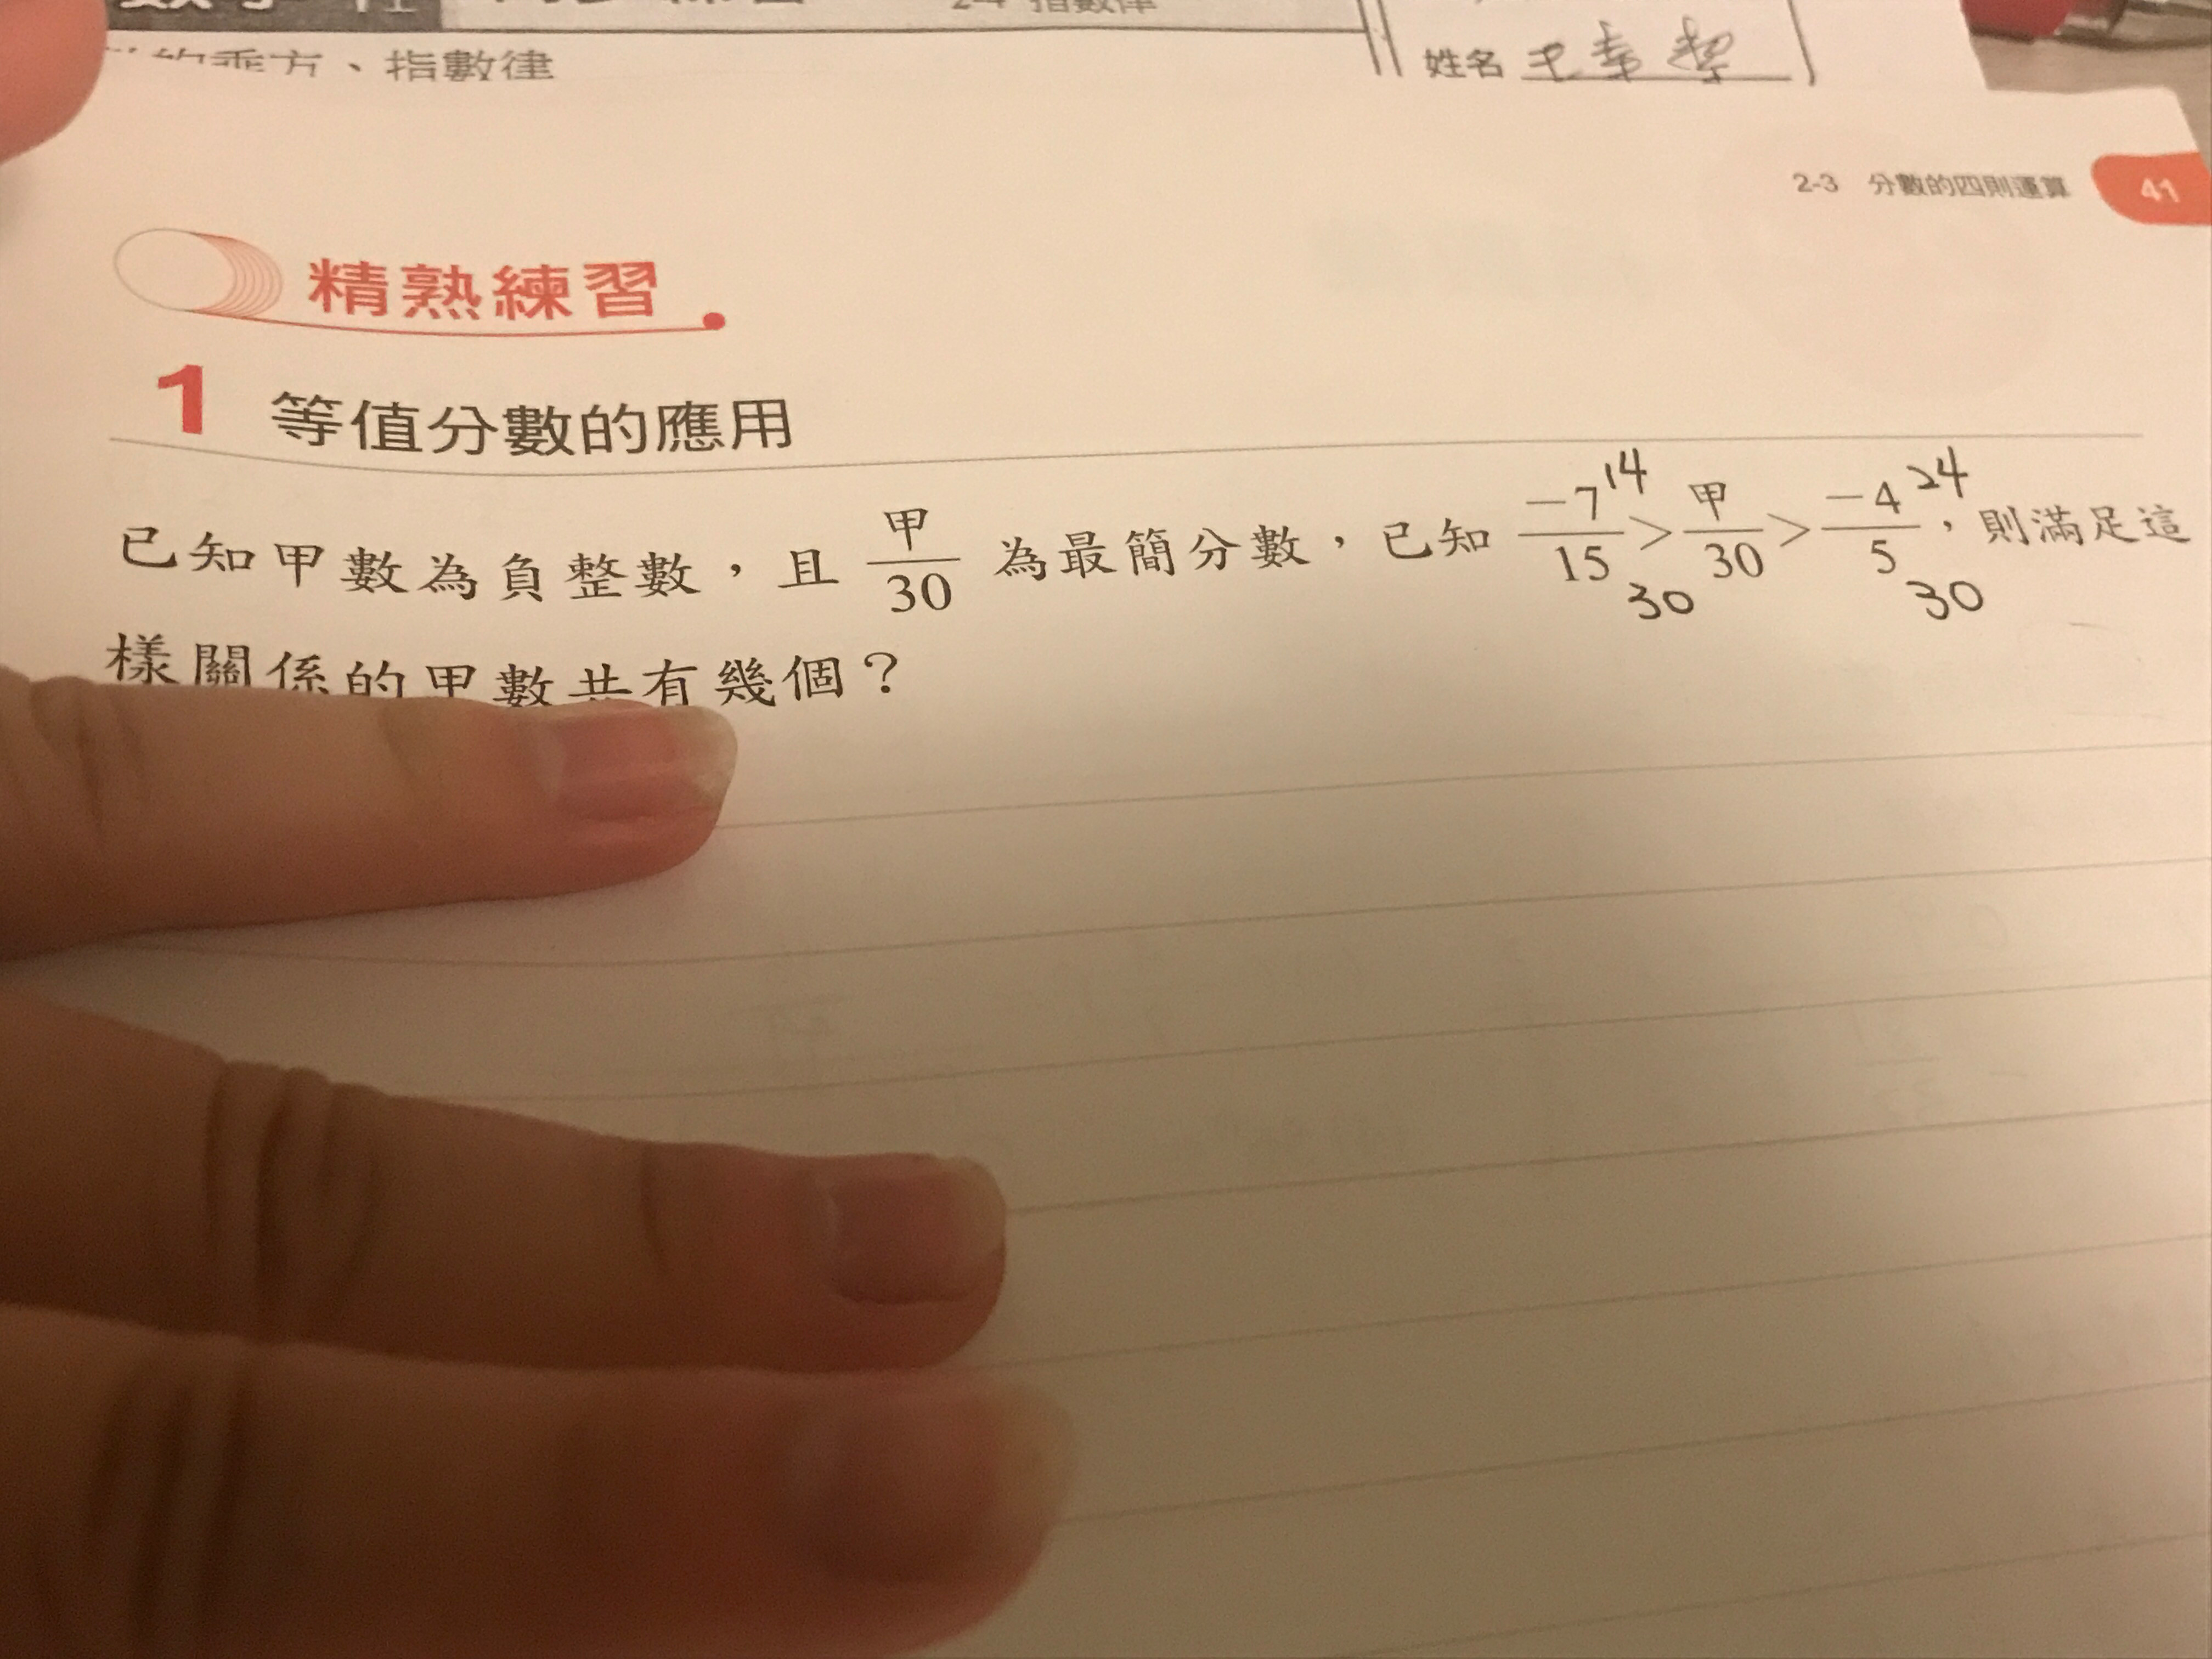 2-4 指數律
的乘方、指數律
姓名
2-3 分數的四則運算 41
精熟練習
1 等值分數的應用
已知甲數為負整數，且 甲/30 為最簡分數，已知 -7/15 > 甲/30 > -4/5，則滿足這
14 24
30 30
樣關係的甲數共有幾個？